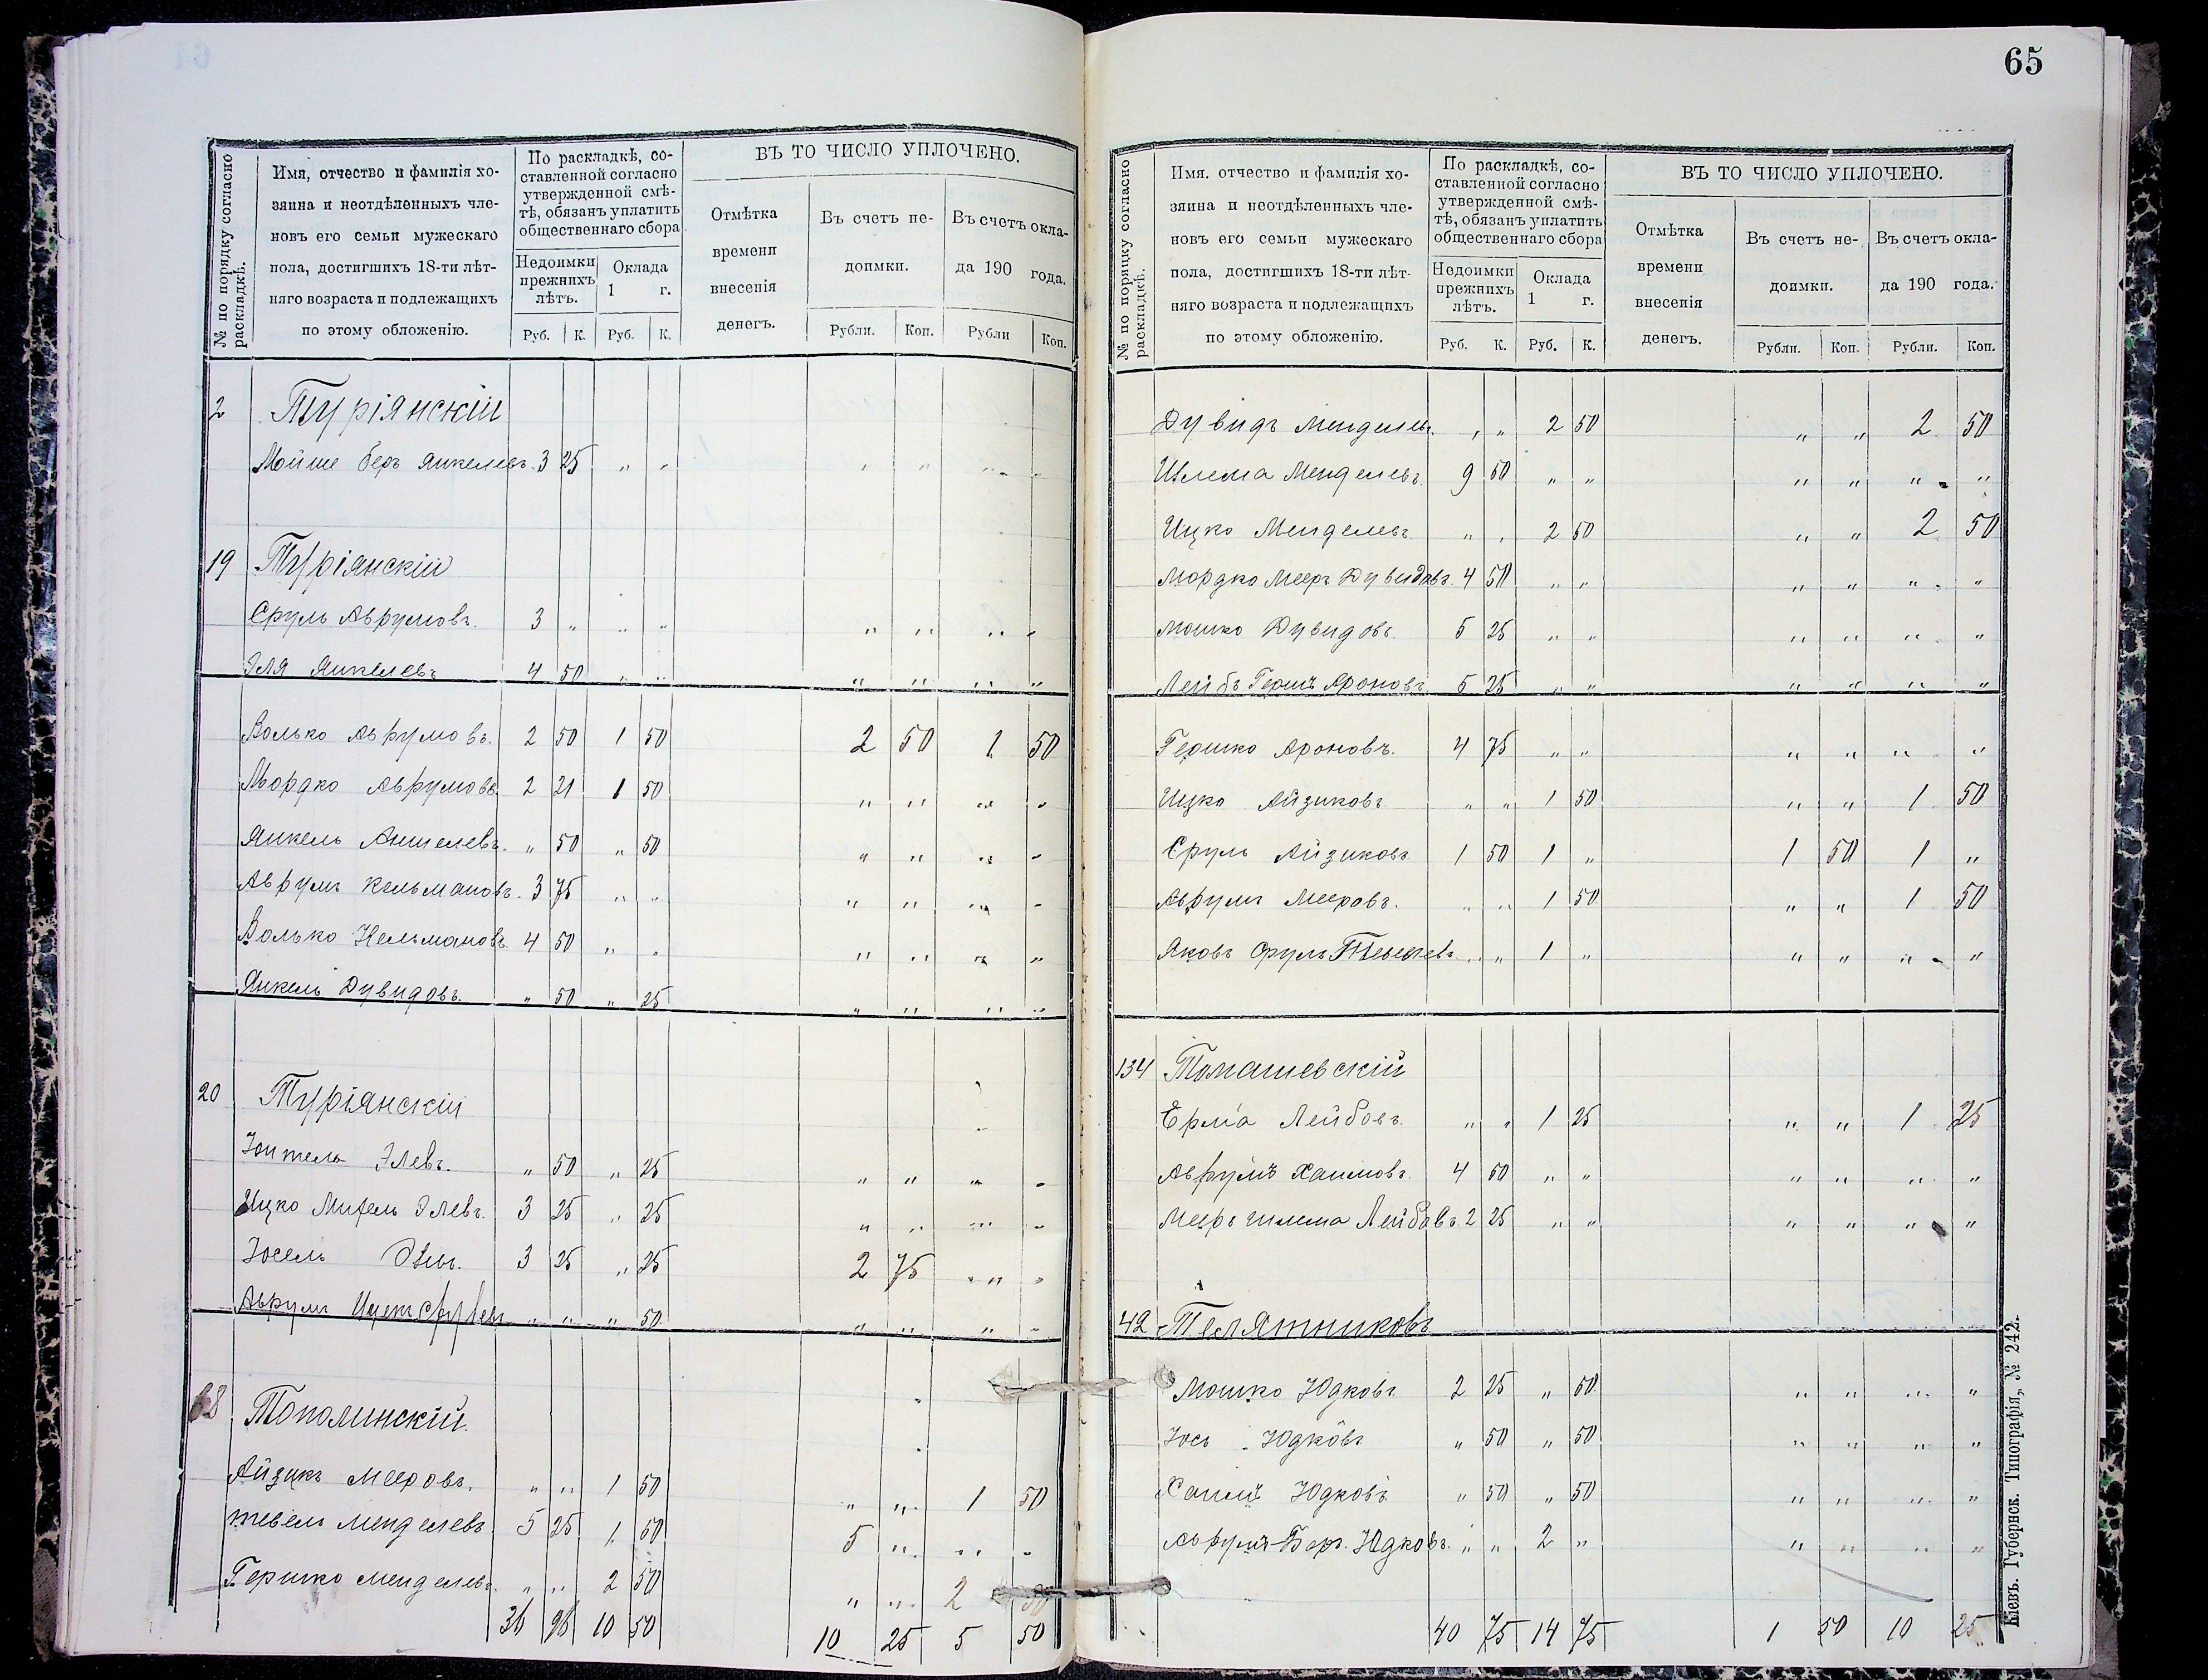 65
№ по порядку согласно раскладкѣ.
Имя, отчество и фамилія хо-
зяина и неотдѣленныхъ чле-
новъ его семьи мужескаго
пола, достигшихъ 18-ти лѣт-
няго возраста и подлежащихъ
по этому обложенію.
По раскладкѣ, со-
ставленной согласно
утвержденной смѣ-
тѣ, обязанъ уплатить
общественнаго сбора.
Недоимки прежнихъ лѣтъ.
Оклада 1 г.
Руб. К. Руб. К.
ВЪ ТО ЧИСЛО УПЛОЧЕНО.
Отмѣтка времени внесенія денегъ.
Въ счетъ не-доимки.
Въ счетъ окла-да 190 года.
Рубли. Коп. Рубли Коп.
2 Туріянскій
Мойше Беръ Янкелевъ. 3 25 " " " " " "
19 Туріянскій
Сруль Аврумовъ. 3 " " " " " " "
Эля Янкелевъ 4 50 " " " " " "
Волько Аврумовъ. 2 50 1 50 2 50 1 50
Мордко Аврумовъ 2 21 1 50 " " " "
Янкель Аншелевъ. " 50 " 50 " " " "
Аврумъ Кельмановъ. 3 75 " " " " " "
Волько Кельмановъ. 4 50 " " " " " "
Янкель Дувидовъ. " 50 " 25 " " " "
20 Туріянскій
Элевъ. " 50 " 25 " " " "
Ицко Элевъ. 3 25 " 25 " " " "
Іосель 3 25 " 25 2 75 " "
Аврумъ " " " 50 " " " "
68 Тополинскій.
Айзикъ Мееровъ. " " 1 50 " " 1 50
Тевель Менделевъ 5 25 1 50 5 " " "
Гершко Менделевъ. " " 2 50 " " 2 50
36 96 10 50 10 25 5 50
№ по порядку согласно раскладкѣ.
Имя. отчество и фамилія хо-
зяина и неотдѣленныхъ чле-
новъ его семьи мужескаго
пола, достигшихъ 18-ти лѣт-
няго возраста и подлежащихъ
по этому обложенію.
По раскладкѣ, со-
ставленной согласно
утвержденной смѣ-
тѣ, обязанъ уплатить
общественнаго сбора
Недоимки прежнихъ лѣтъ.
Оклада 1 г.
Руб. К. Руб. К.
ВЪ ТО ЧИСЛО УПЛОЧЕНО.
Отмѣтка времени внесенія денегъ.
Въ счетъ не-доимки.
Въ счетъ окла-да 190 года.
Рубли. Коп. Рубли. Коп.
Дувидъ Менделевъ. " " 2 50 " " 2 50
Шлема Менделевъ. 9 50 " " " " " "
Ицко Менделевъ " " 2 50 " " 2 50
Мордко Мееръ Дувидовъ. 4 50 " " " " " "
Мошко Дувидовъ. 5 25 " " " " " "
Лейбъ Гершъ Ароновъ. 5 25 " " " " " "
Гершко Ароновъ. 4 75 " " " " " "
Ицко Айзиковъ " " 1 50 " " 1 50
Сруль Айзиковъ 1 50 1 " 1 50 1 "
Аврумъ Мееровъ. " " 1 50 " " 1 50
Яковъ Сруль Тевелевъ " " 1 " " " " "
134 Томашевскій
Ерма Лейбовъ. " " 1 25 " " 1 25
Аврумъ Хаимовъ. 4 50 " " " " " "
Мееръ Шлема Лейбовъ. 2 25 " " " " " "
42 Телятниковъ
Мошко Юдковъ 2 25 " 50 " " " "
Іось Юдковъ " 50 " 50 " " " "
Хаимъ Юдковъ " 50 " 50 " " " "
Аврумъ-Беръ. Юдковъ. " " 2 " " " " "
40 75 14 75 1 50 10 25
Кіевъ. Губернск. Типографія, № 242.